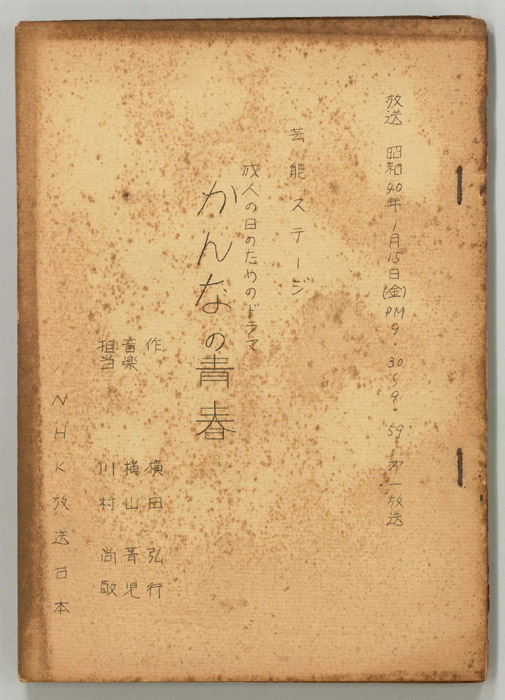 放送 昭和40年1月15日(金)PM9.30〜9.59 才一放送
芸能ステージ
成人の日のためのドラマ
かんなの青春
作 横田 弘行
音楽 横山 菁児
担当 川村 尚敬
NHK放送台本